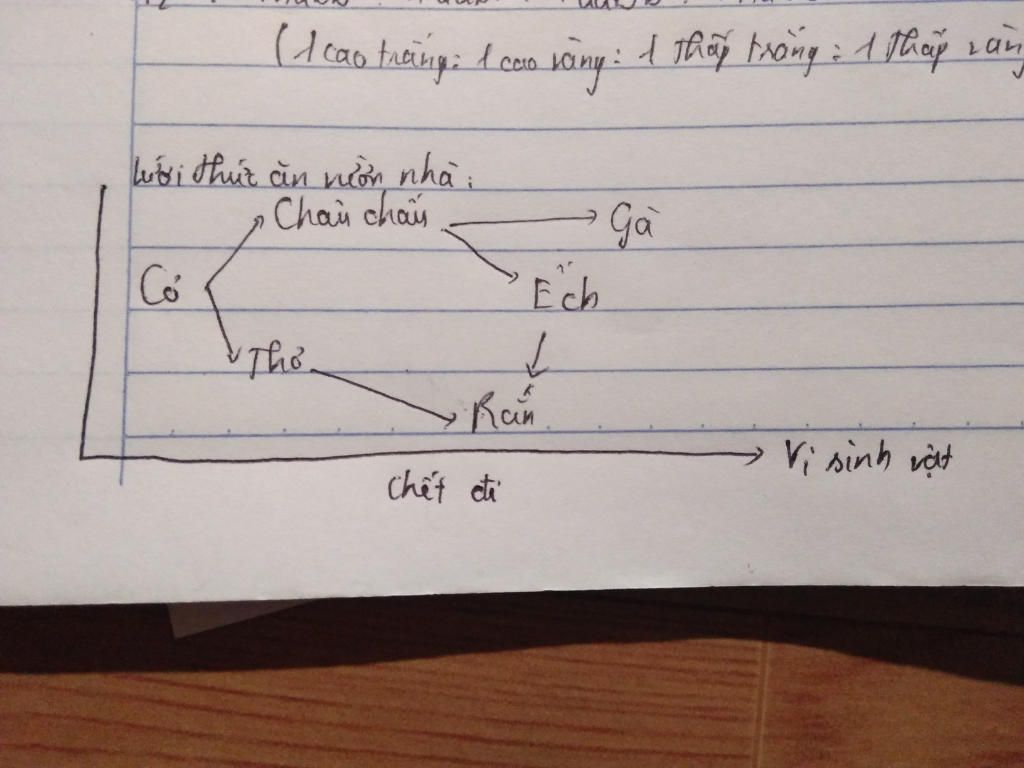 (1 cao trắng : 1 cao vàng : 1 thấp trắng : 1 thấp vàng
lưới thức ăn vườn nhà :
Châu chấu
Gà
Cỏ
Ếch
Thỏ
Rắn
Vi sinh vật
Chết đi